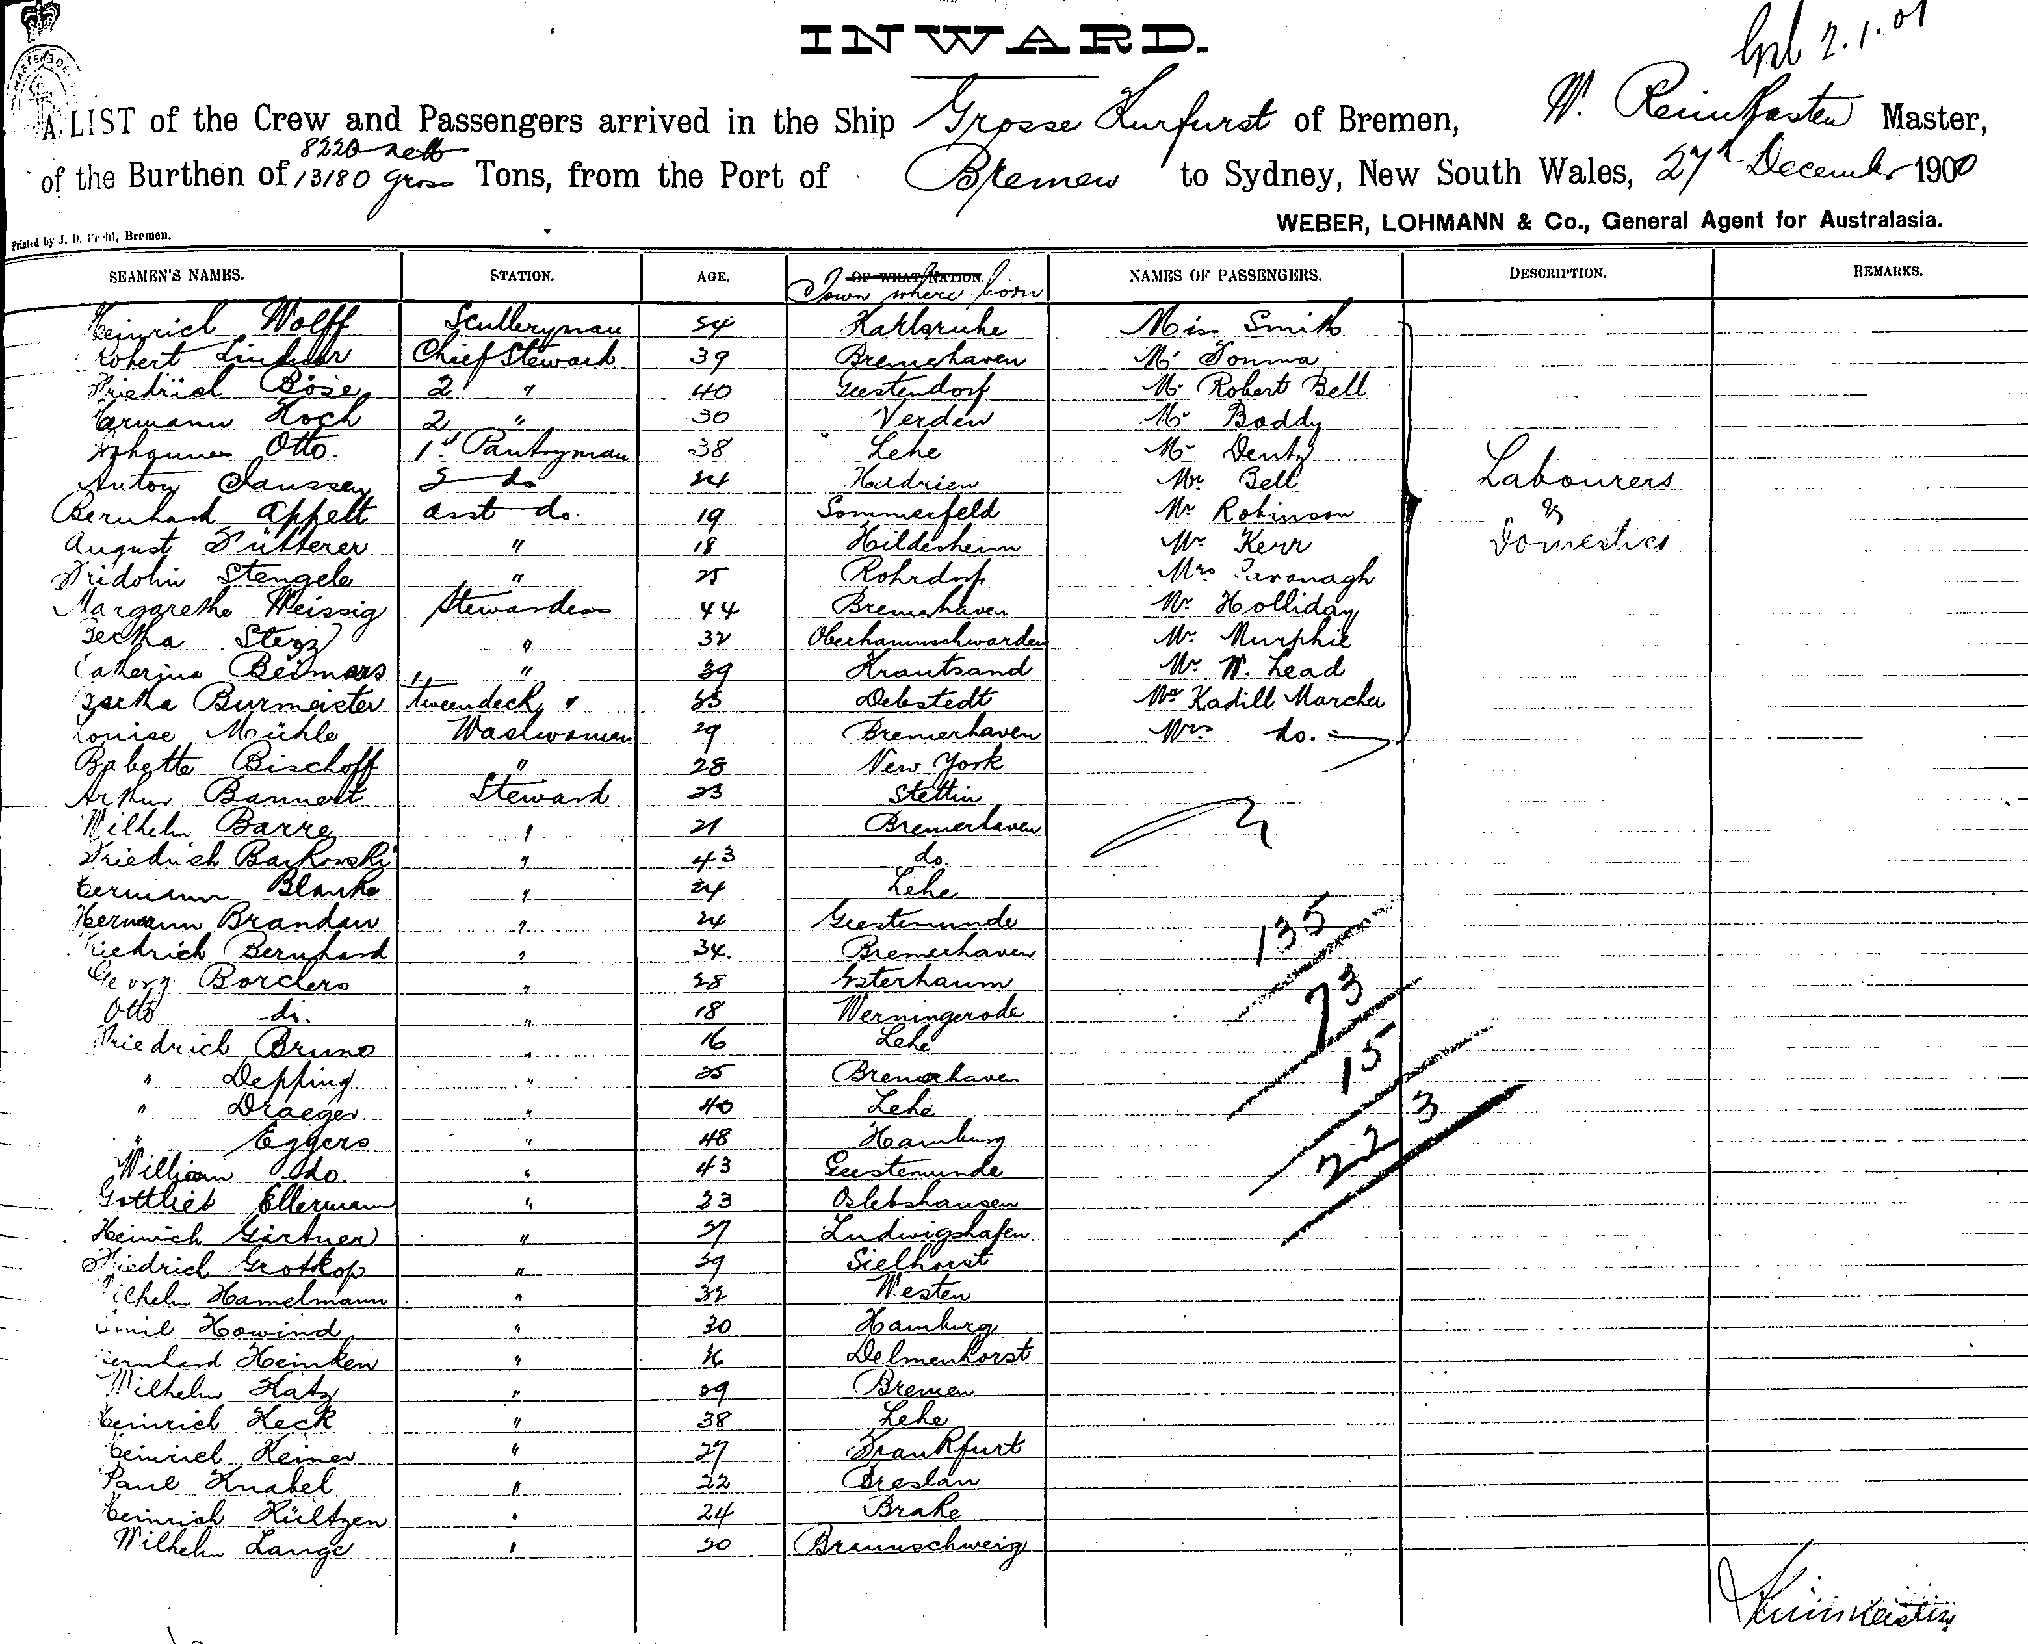 INWARD.
2.1.01
A LIST of the Crew and Passengers arrived in the Ship Grosse Kurfurst of Bremen, W. Reimkasten Master,
8220 nett
of the Burthen of 13180 gross Tons, from the Port of Bremen to Sydney, New South Wales, 27th December 1900
WEBER, LOHMANN & Co., General Agent for Australasia.
Printed by J. D. Bremen.
SEAMEN'S NAMES. STATION. AGE. OF WHAT NATION NAMES OF PASSENGERS. DESCRIPTION. REMARKS.
Town where born
Heinrich Wolff Sculleryman 54 Karlsruhe Miss Smith
Robert Chief Steward 39 Bremerhaven Mr Tonma
Friedrich Böse 2 " 40 Geestendorf Mr Robert Bell
Hermann Koch 2 " 30 Verden Mr Boddy
Johannes Otto. 1st Pantryman 38 Lehe Mr Dentz
Anton Janssen 2 do 24 Mr Bell Labourers
Bernhard Appelt asst do. 19 Sommerfeld Mr Robinson &
August Fütterer " 18 Hildesheim Mr Kerr Domestics
Fridolin Stengele " 25 Rohrdorf Mrs Cavanagh
Margarethe Weissig Stewardess 44 Bremerhaven Mr Holliday
Gesha " 32 Oberhammschwarden Mr Murphie
Catherine Beimars " 39 Krautsand Mr W. Lead
Gesha Burmeister tweendeck " 35 Debstedt Mr Kadill Marcha
Louise Mühle Washwoman 29 Bremerhaven Mrs do.
Babette Bischoff " 28 New York
Arthur Bannert Steward 23 Stettin
Wilhelm Barre " 21 Bremerhaven
Friedrich Baykowski " 43 do.
Hermann Blanke " 24 Lehe
Hermann Brandau " 24 Geestemunde
135
Friedrich Bernhard " 34. Bremerhaven
Georg Borchers " 28
73
Otto do. " 18 Werningerode
Friedrich Bruno " 16 Lehe
15
" Depping " 25 Bremerhaven
" Draeger " 40 Lehe
223
" Eggers " 48 Hamburg
William do. " 43 Geestemunde
Gottlieb Ellermann " 23 Oslebshausen
Heinrich Gärtner " 27 Ludwigshafen
Friedrich Grotkop " 29 Sielhorst
Wilhelm Hamelmann " 32 Westen
Emil Howind " 30 Hamburg
Bernhard Heinken " Delmenhorst
Wilhelm Katz " 29 Bremen
Heinrich Keck " 38 Lehe
Heinrich Keiner " 27 Frankfurt
Paul Knabel " 22 Breslau
Heinrich Kültzen " 24 Brake
Wilhelm Lange " 20 Braunschweig
Reimkasten